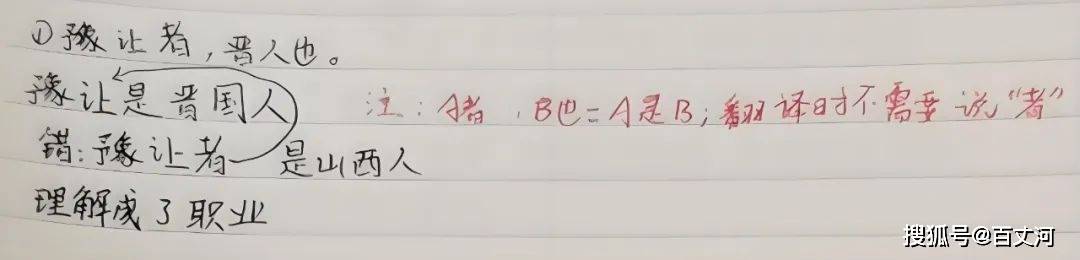 ①豫让者，晋人也。
豫让是晋国人
注：A者，B也=A是B；翻译时不需要说“者”
错：豫让者 是山西人
理解成了职业
搜狐号@百丈河